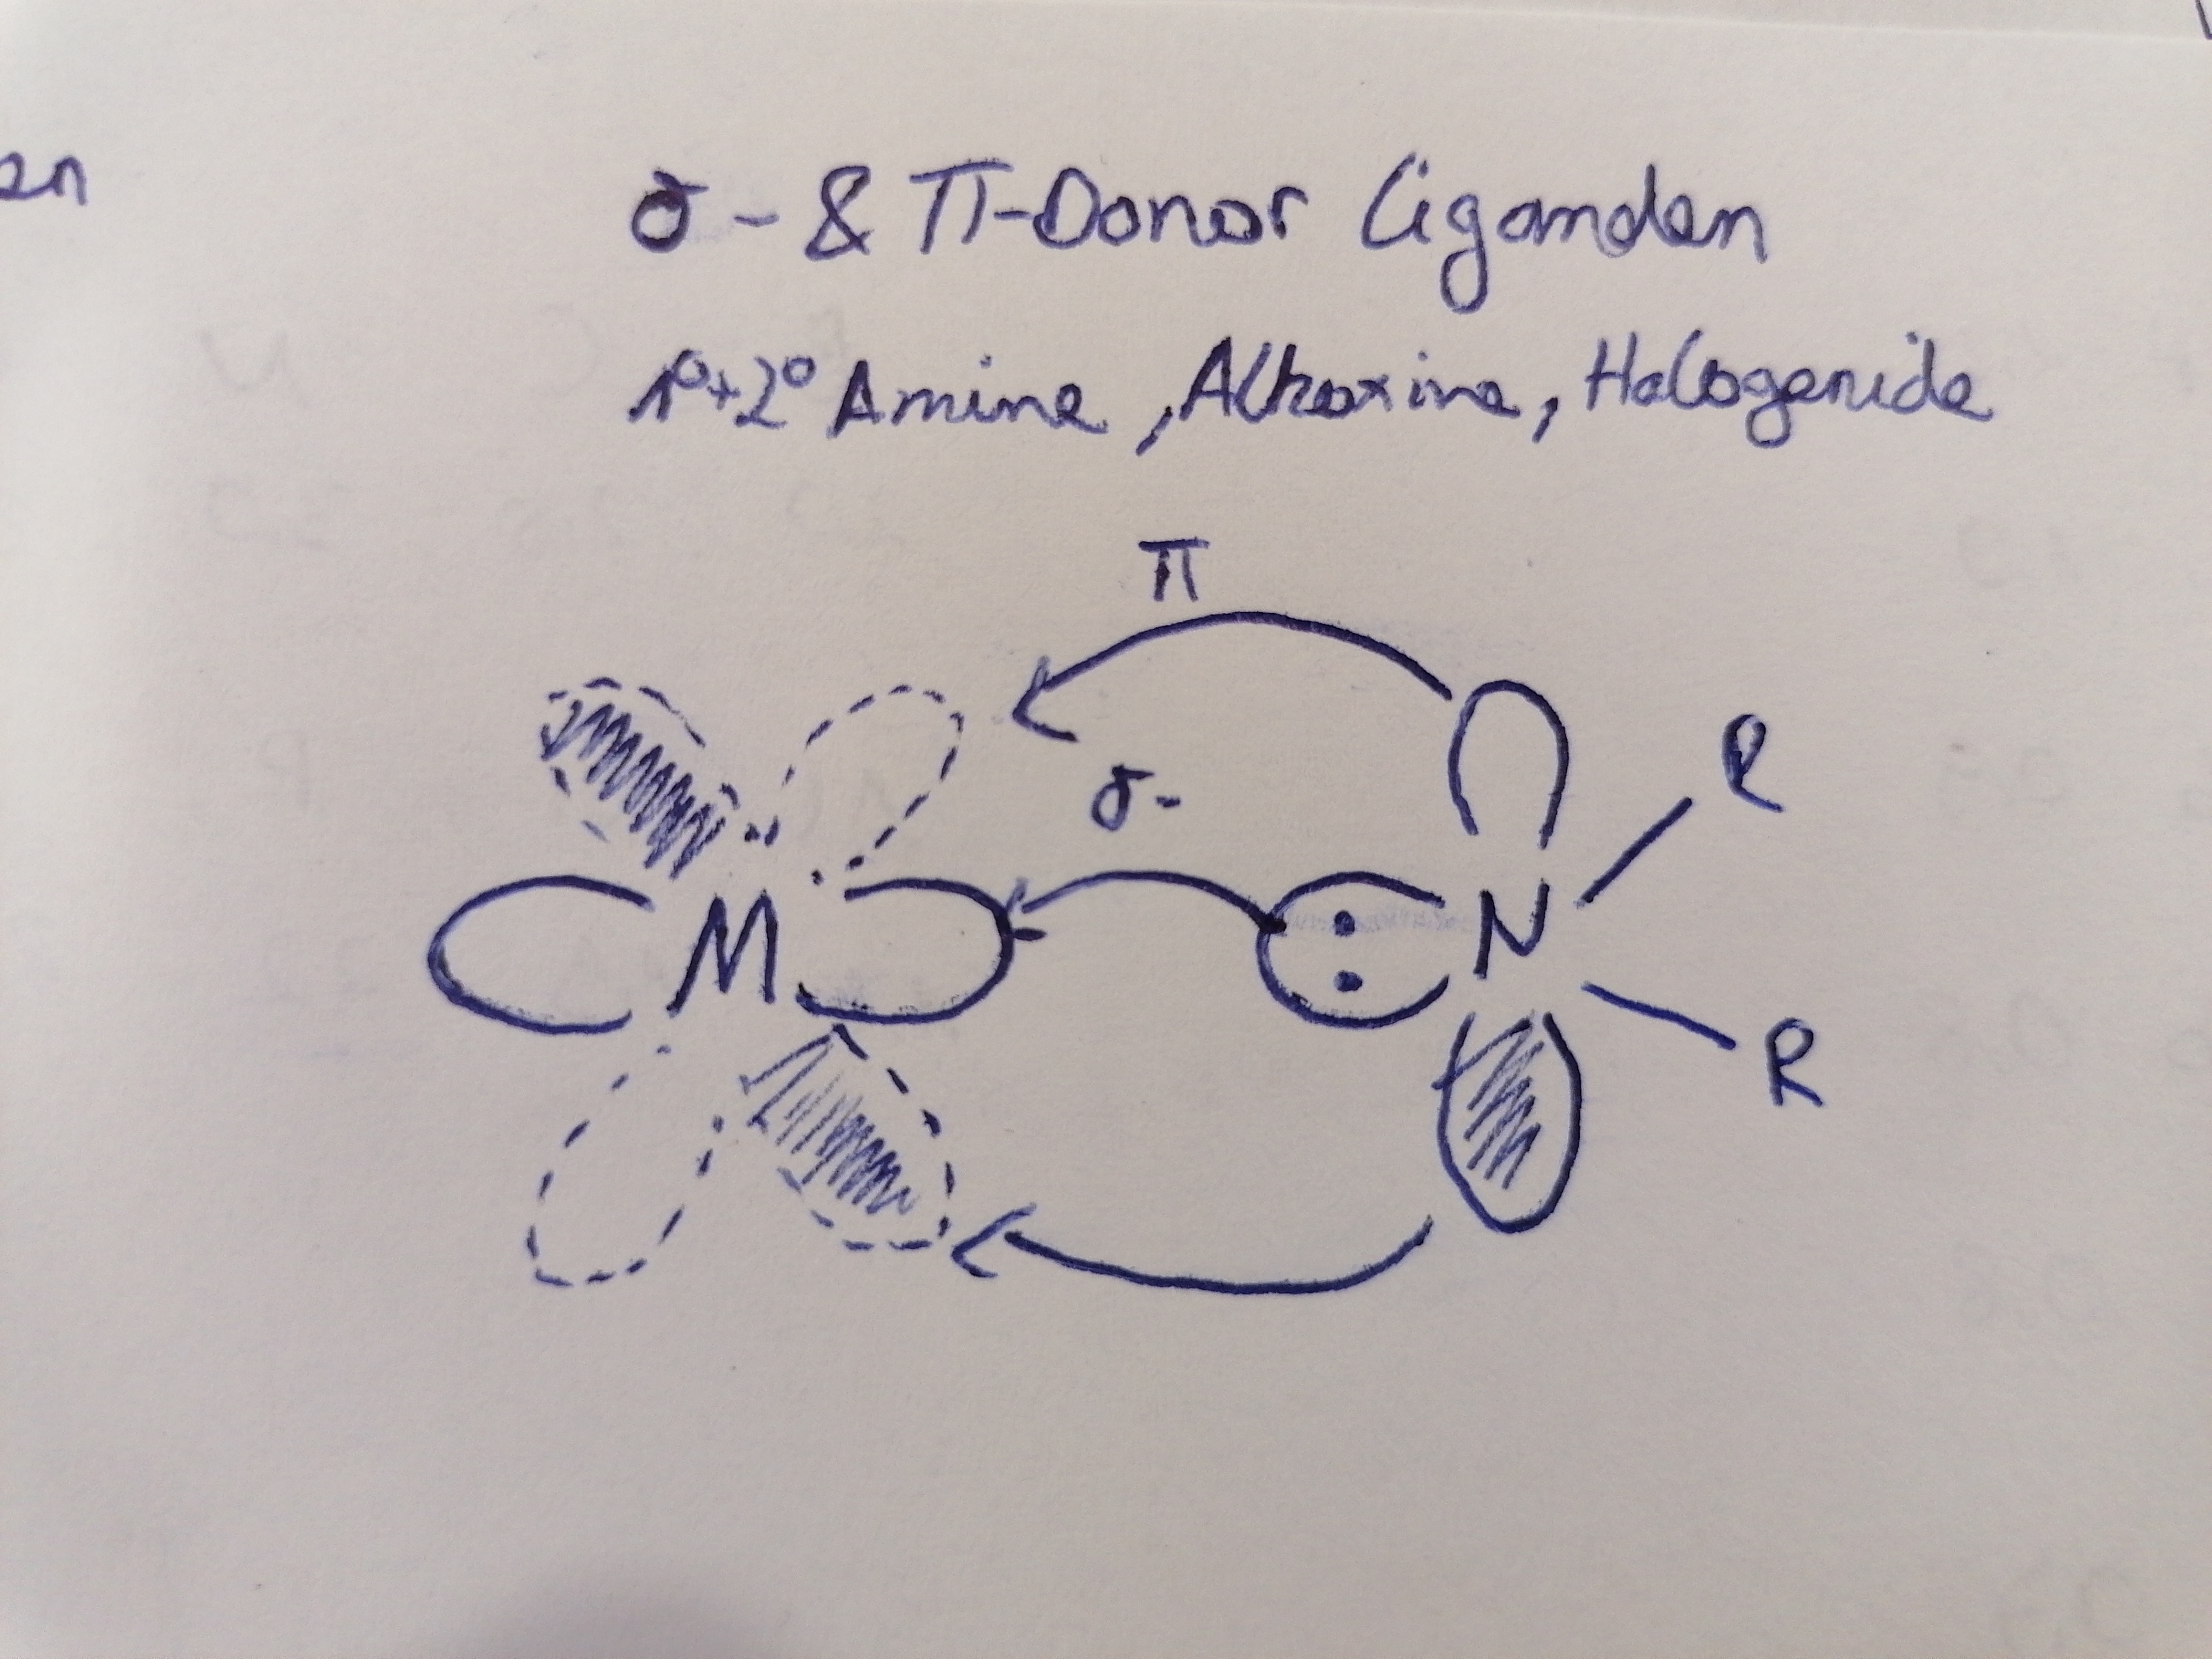 en
σ- & π-Donor Liganden
1°+2° Amine, Alkoxine, Halogenide
π
σ-
R
M
N
R